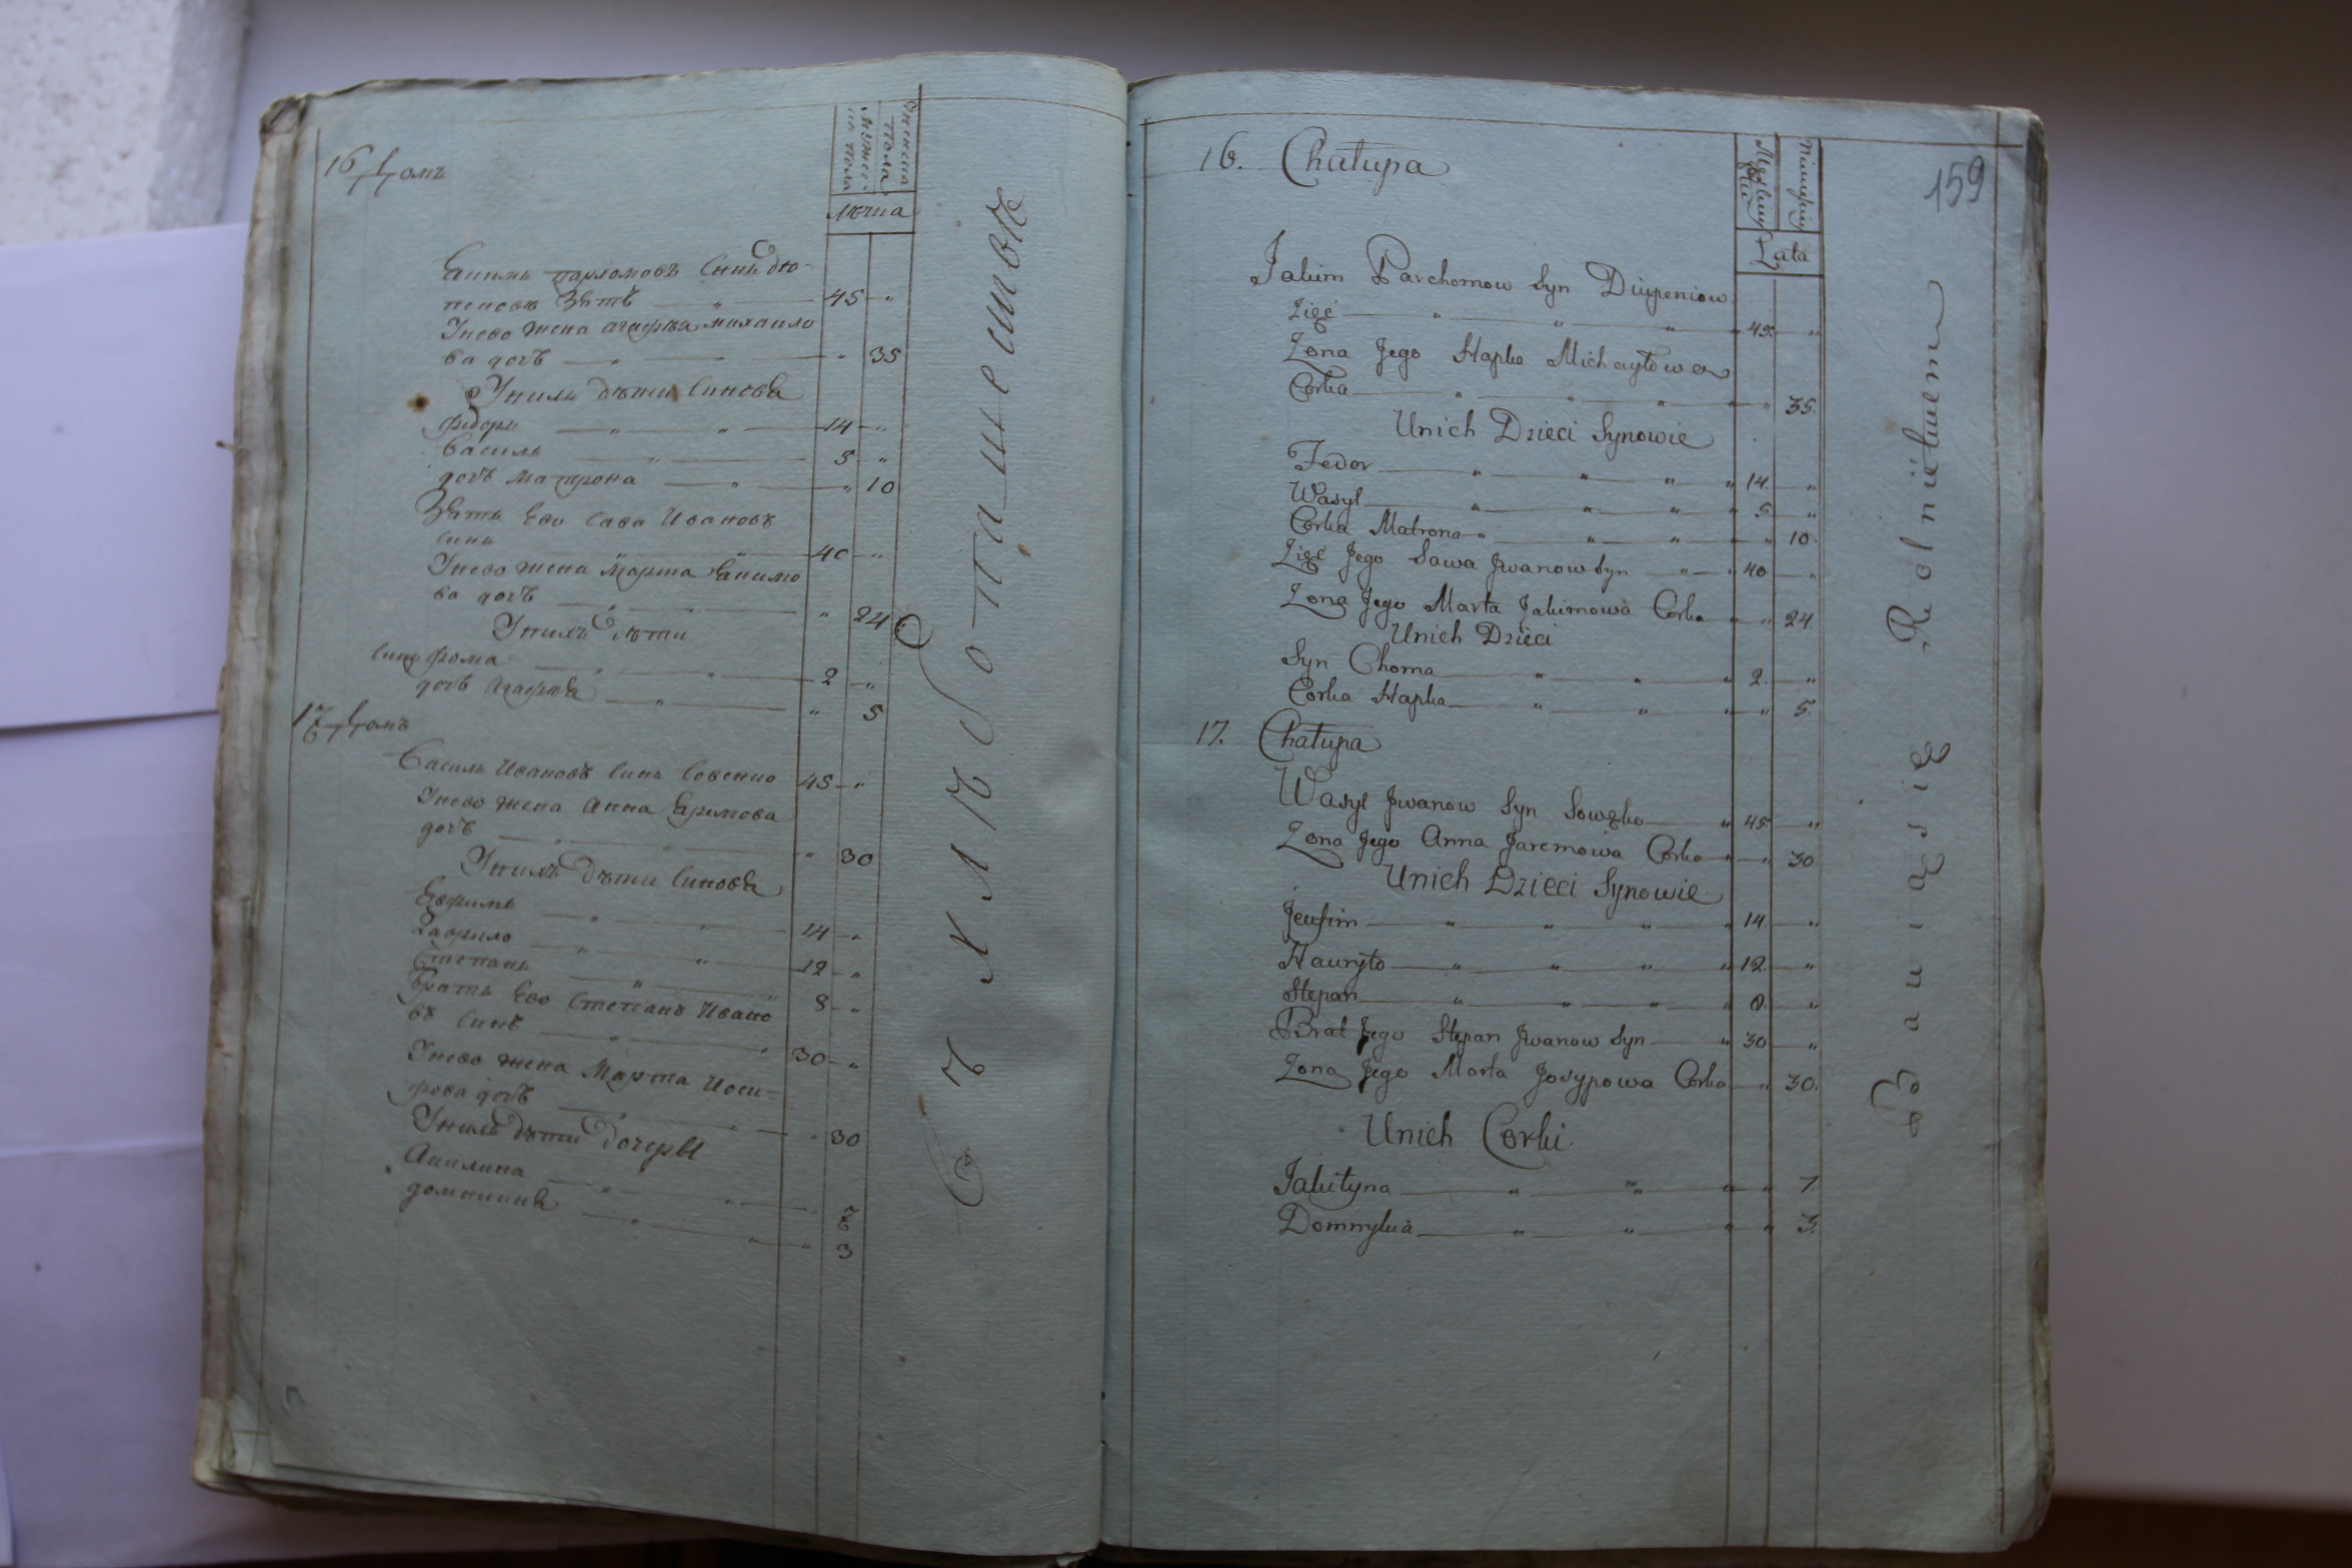 16 Домъ
Женска
пола
мужес:
ко пола
лѣта
Якимъ пархомовъ Синъ дю-
пеновъ Зять — „ — 45 — „
Унево жена агафія михаило
ва дочь — „ — „ 35
Унихъ дѣти Синовя
Федоръ — „ — „ — 14 — „
Василь — „ — 5 — „
дочь Матрона — „ — „ 10
Зять Его Сава Ивановъ
Синъ — „ — 40 — „
Унево жена Марта Якимо
ва дочь — „ — „ 24
Унихъ Дѣти
Синъ Фома — „ — „ — 2 — „
дочь Агафія — „ — „ 5
17 Домъ
Василь Ивановъ Синъ Совенко 45 — „
Унево жена Анна Яримова
дочь — „ — „ — „ 30
Унихъ Дѣти Синовя
Евфимъ — „ — „ — 14 — „
Гаврило — „ — „ — 12 — „
Степанъ — „ — „ 8 — „
Братъ Его Степанъ Ивано
въ Синъ — „ — „ 30 — „
Унево жена Марта Иоси-
фова дочь — „ — „ — „ 30
Унихъ дѣти Дочеры
Акилина — „ — „ — „ 7
домникия — „ — „ — „ 3
Съ хлѣбопашества
159
16. Chałupa
Męskiey
Płci
Niewieściey
Lata
Jakim Parchomow Syn Diupeniow
Zięć — „ — „ — „ — „ 45. — „
Żona Jego Hapka Michayłowa
Corka — „ — „ — „ — „ — „ 35.
Unich Dzieci Synowie
Fedor — „ — „ — „ — „ 14. — „
Wasyl — „ — „ — „ — „ 5. — „
Corka Matrona — „ — „ — „ — „ 10.
Zięć Jego Sawa Jwanow Syn — „ — „ 40. — „
Żona Jego Marta Jakimowa Corka — „ 24.
Unich Dzieci
Syn Choma — „ — „ — „ 2. — „
Corka Hapka — „ — „ — „ — „ 5.
17. Chałupa
Wasyl Jwanow Syn Sowęko — „ 45. — „
Żona Jego Anna Jaremowa Corka — „ 30.
Unich Dzieci Synowie
Jeufim — „ — „ — „ — „ 14. — „
Hauryło — „ — „ — „ — „ 12. — „
Stepan — „ — „ — „ — „ 8. — „
Brat Jego Stepan Jwanow Syn — „ 30 — „
Żona Jego Marta Josypowa Corka — „ 30.
Unich Corki.
Jakityna — „ — „ — „ — „ 7.
Domnykia — „ — „ — „ — „ 3.
Bawią się Rolnictwem